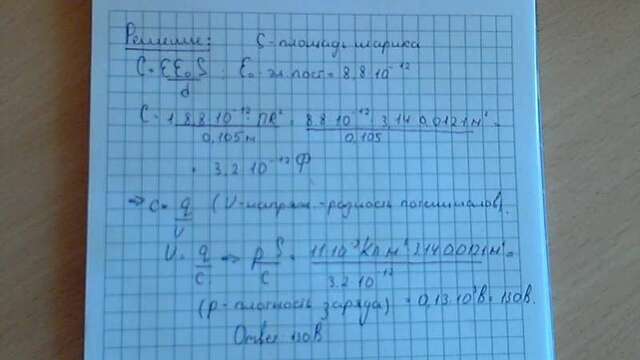 Решение: S-площадь шарика
C=EE₀S/d ; E₀-эл.пост=8,8·10⁻¹²
C=1·8,8·10⁻¹²·ПR²/0,105м = 8,8·10⁻¹²·3,14·0,0121м²/0,105 =
= 3,2·10⁻¹²Ф
⇒ C=q/U (U-напряж.-разность потенциалов).
U=q/C ⇒ pS/C = 11·10⁻⁹Кл/м²·3,14·0,0121м²/3,2·10⁻¹² =
(p-плотность заряда) = 0,13·10³В = 130В.
Ответ 130В